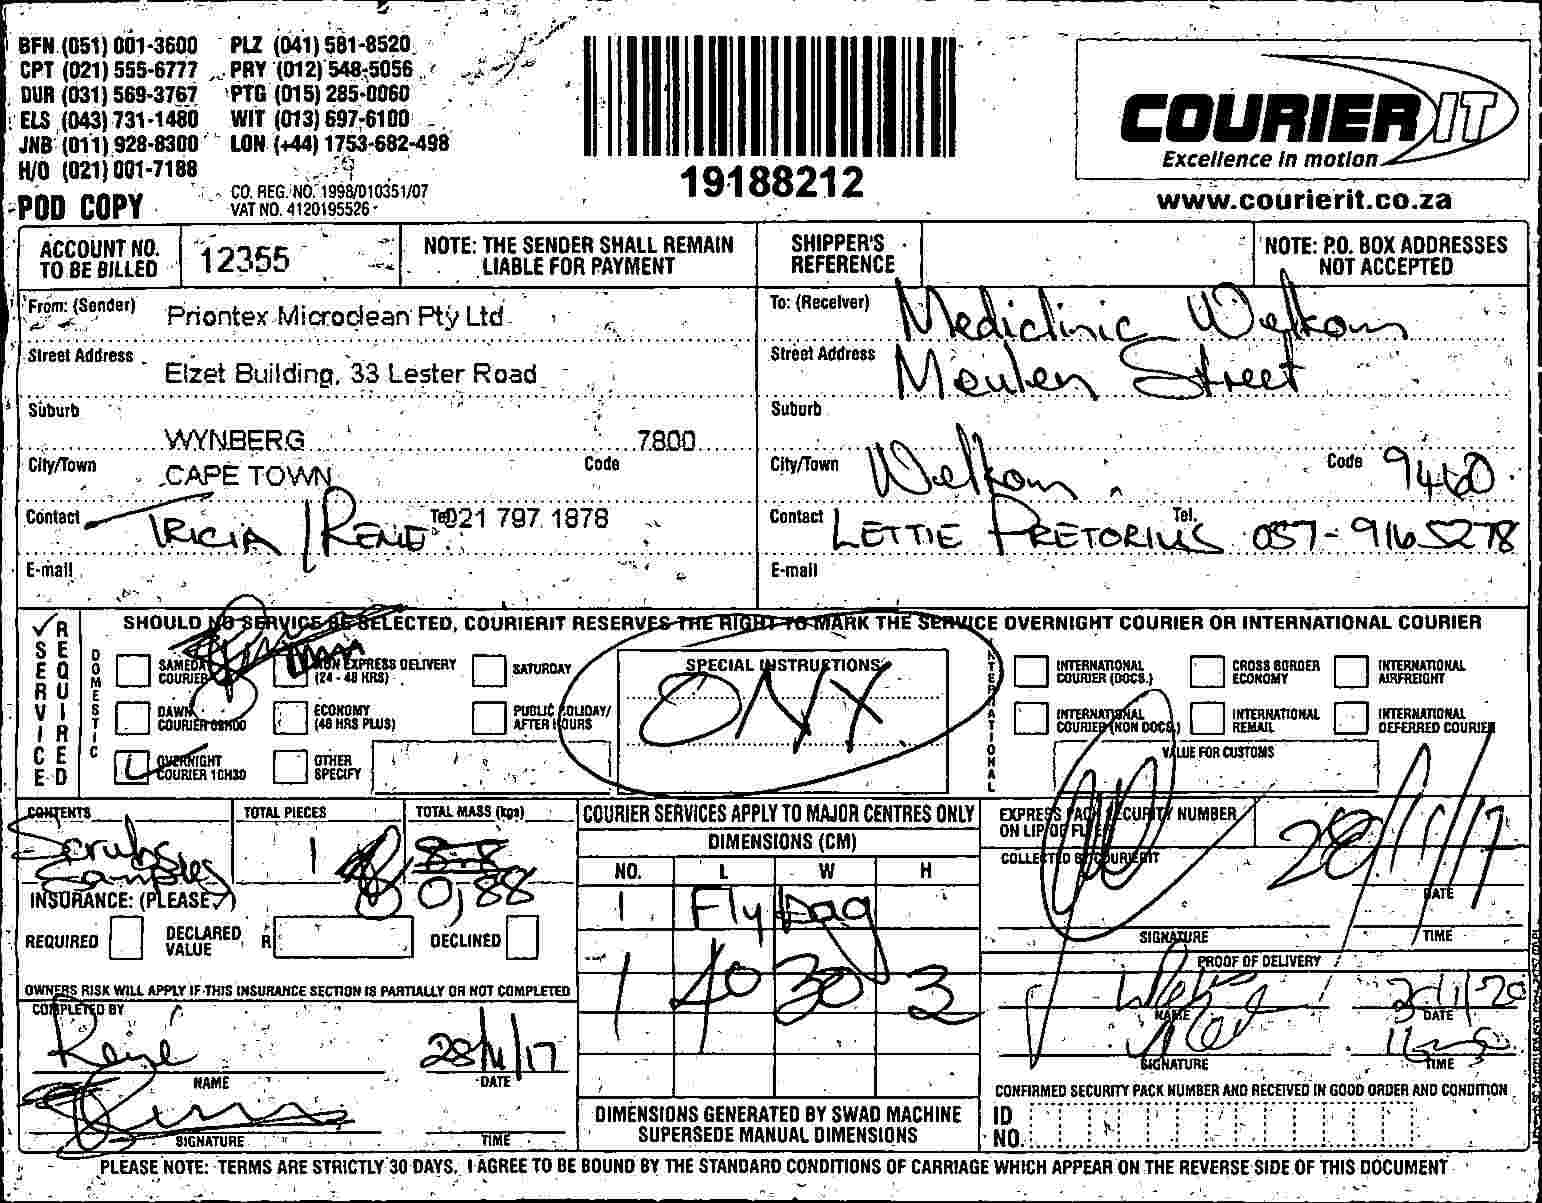 BFN (051) 001-3600 PLZ (041) 581-8520
CPT (021) 555-6777 PRY (012) 548-5056
DUR (031) 569-3767 PTG (015) 285-0060
ELS (043) 731-1480 WIT (013) 697-6100
JNB (011) 928-8300 LON (+44) 1753-682-498
H/O (021) 001-7188
CO. REG. NO. 1998/010351/07
VAT NO. 4120195526
POD COPY
19188212
COURIER IT
Excellence in motion
www.courierit.co.za
ACCOUNT NO. TO BE BILLED 12355
NOTE: THE SENDER SHALL REMAIN LIABLE FOR PAYMENT
SHIPPER'S REFERENCE
NOTE: P.O. BOX ADDRESSES NOT ACCEPTED
From: (Sender) Priontex Microclean Pty Ltd
Street Address Elzet Building, 33 Lester Road
Suburb WYNBERG 7800
City/Town CAPE TOWN Code
Contact TRICIA / RENE Tel 021 797 1878
E-mail
To: (Receiver) Mediclinic Welkom
Street Address Meulen Street
Suburb
City/Town Welkom Code 9460
Contact LETTIE PRETORIUS Tel. 057-9165278
E-mail
SHOULD NO SERVICE BE SELECTED, COURIERIT RESERVES THE RIGHT TO MARK THE SERVICE OVERNIGHT COURIER OR INTERNATIONAL COURIER
SERVICE REQUIRED
DOMESTIC
SAMEDAY COURIER
EXPRESS DELIVERY (24 - 48 HRS)
SATURDAY
DAWN COURIER 09H00
ECONOMY (48 HRS PLUS)
PUBLIC HOLIDAY/ AFTER HOURS
OVERNIGHT COURIER 10H30
OTHER SPECIFY
SPECIAL INSTRUCTIONS
ONYX
INTERNATIONAL
INTERNATIONAL COURIER (DOCS.)
CROSS BORDER ECONOMY
INTERNATIONAL AIRFREIGHT
INTERNATIONAL COURIER (NON DOCS.)
INTERNATIONAL REMAIL
INTERNATIONAL DEFERRED COURIER
VALUE FOR CUSTOMS
CONTENTS Scrubs Samples
TOTAL PIECES 1
TOTAL MASS (kgs) 0,88
INSURANCE: (PLEASE ✓)
REQUIRED DECLARED VALUE R DECLINED
OWNERS RISK WILL APPLY IF THIS INSURANCE SECTION IS PARTIALLY OR NOT COMPLETED
COMPLETED BY
René 28/11/17
NAME DATE
SIGNATURE TIME
COURIER SERVICES APPLY TO MAJOR CENTRES ONLY
DIMENSIONS (CM)
NO. L W H
1 Flybag
1 40 30 3
DIMENSIONS GENERATED BY SWAD MACHINE SUPERSEDE MANUAL DIMENSIONS
EXPRESS PACK SECURITY NUMBER ON LIP OF FLYER
COLLECTED BY COURIERIT
28/11/17
DATE
SIGNATURE TIME
PROOF OF DELIVERY
NAME DATE
SIGNATURE TIME
CONFIRMED SECURITY PACK NUMBER AND RECEIVED IN GOOD ORDER AND CONDITION
ID NO.
PLEASE NOTE: TERMS ARE STRICTLY 30 DAYS. I AGREE TO BE BOUND BY THE STANDARD CONDITIONS OF CARRIAGE WHICH APPEAR ON THE REVERSE SIDE OF THIS DOCUMENT